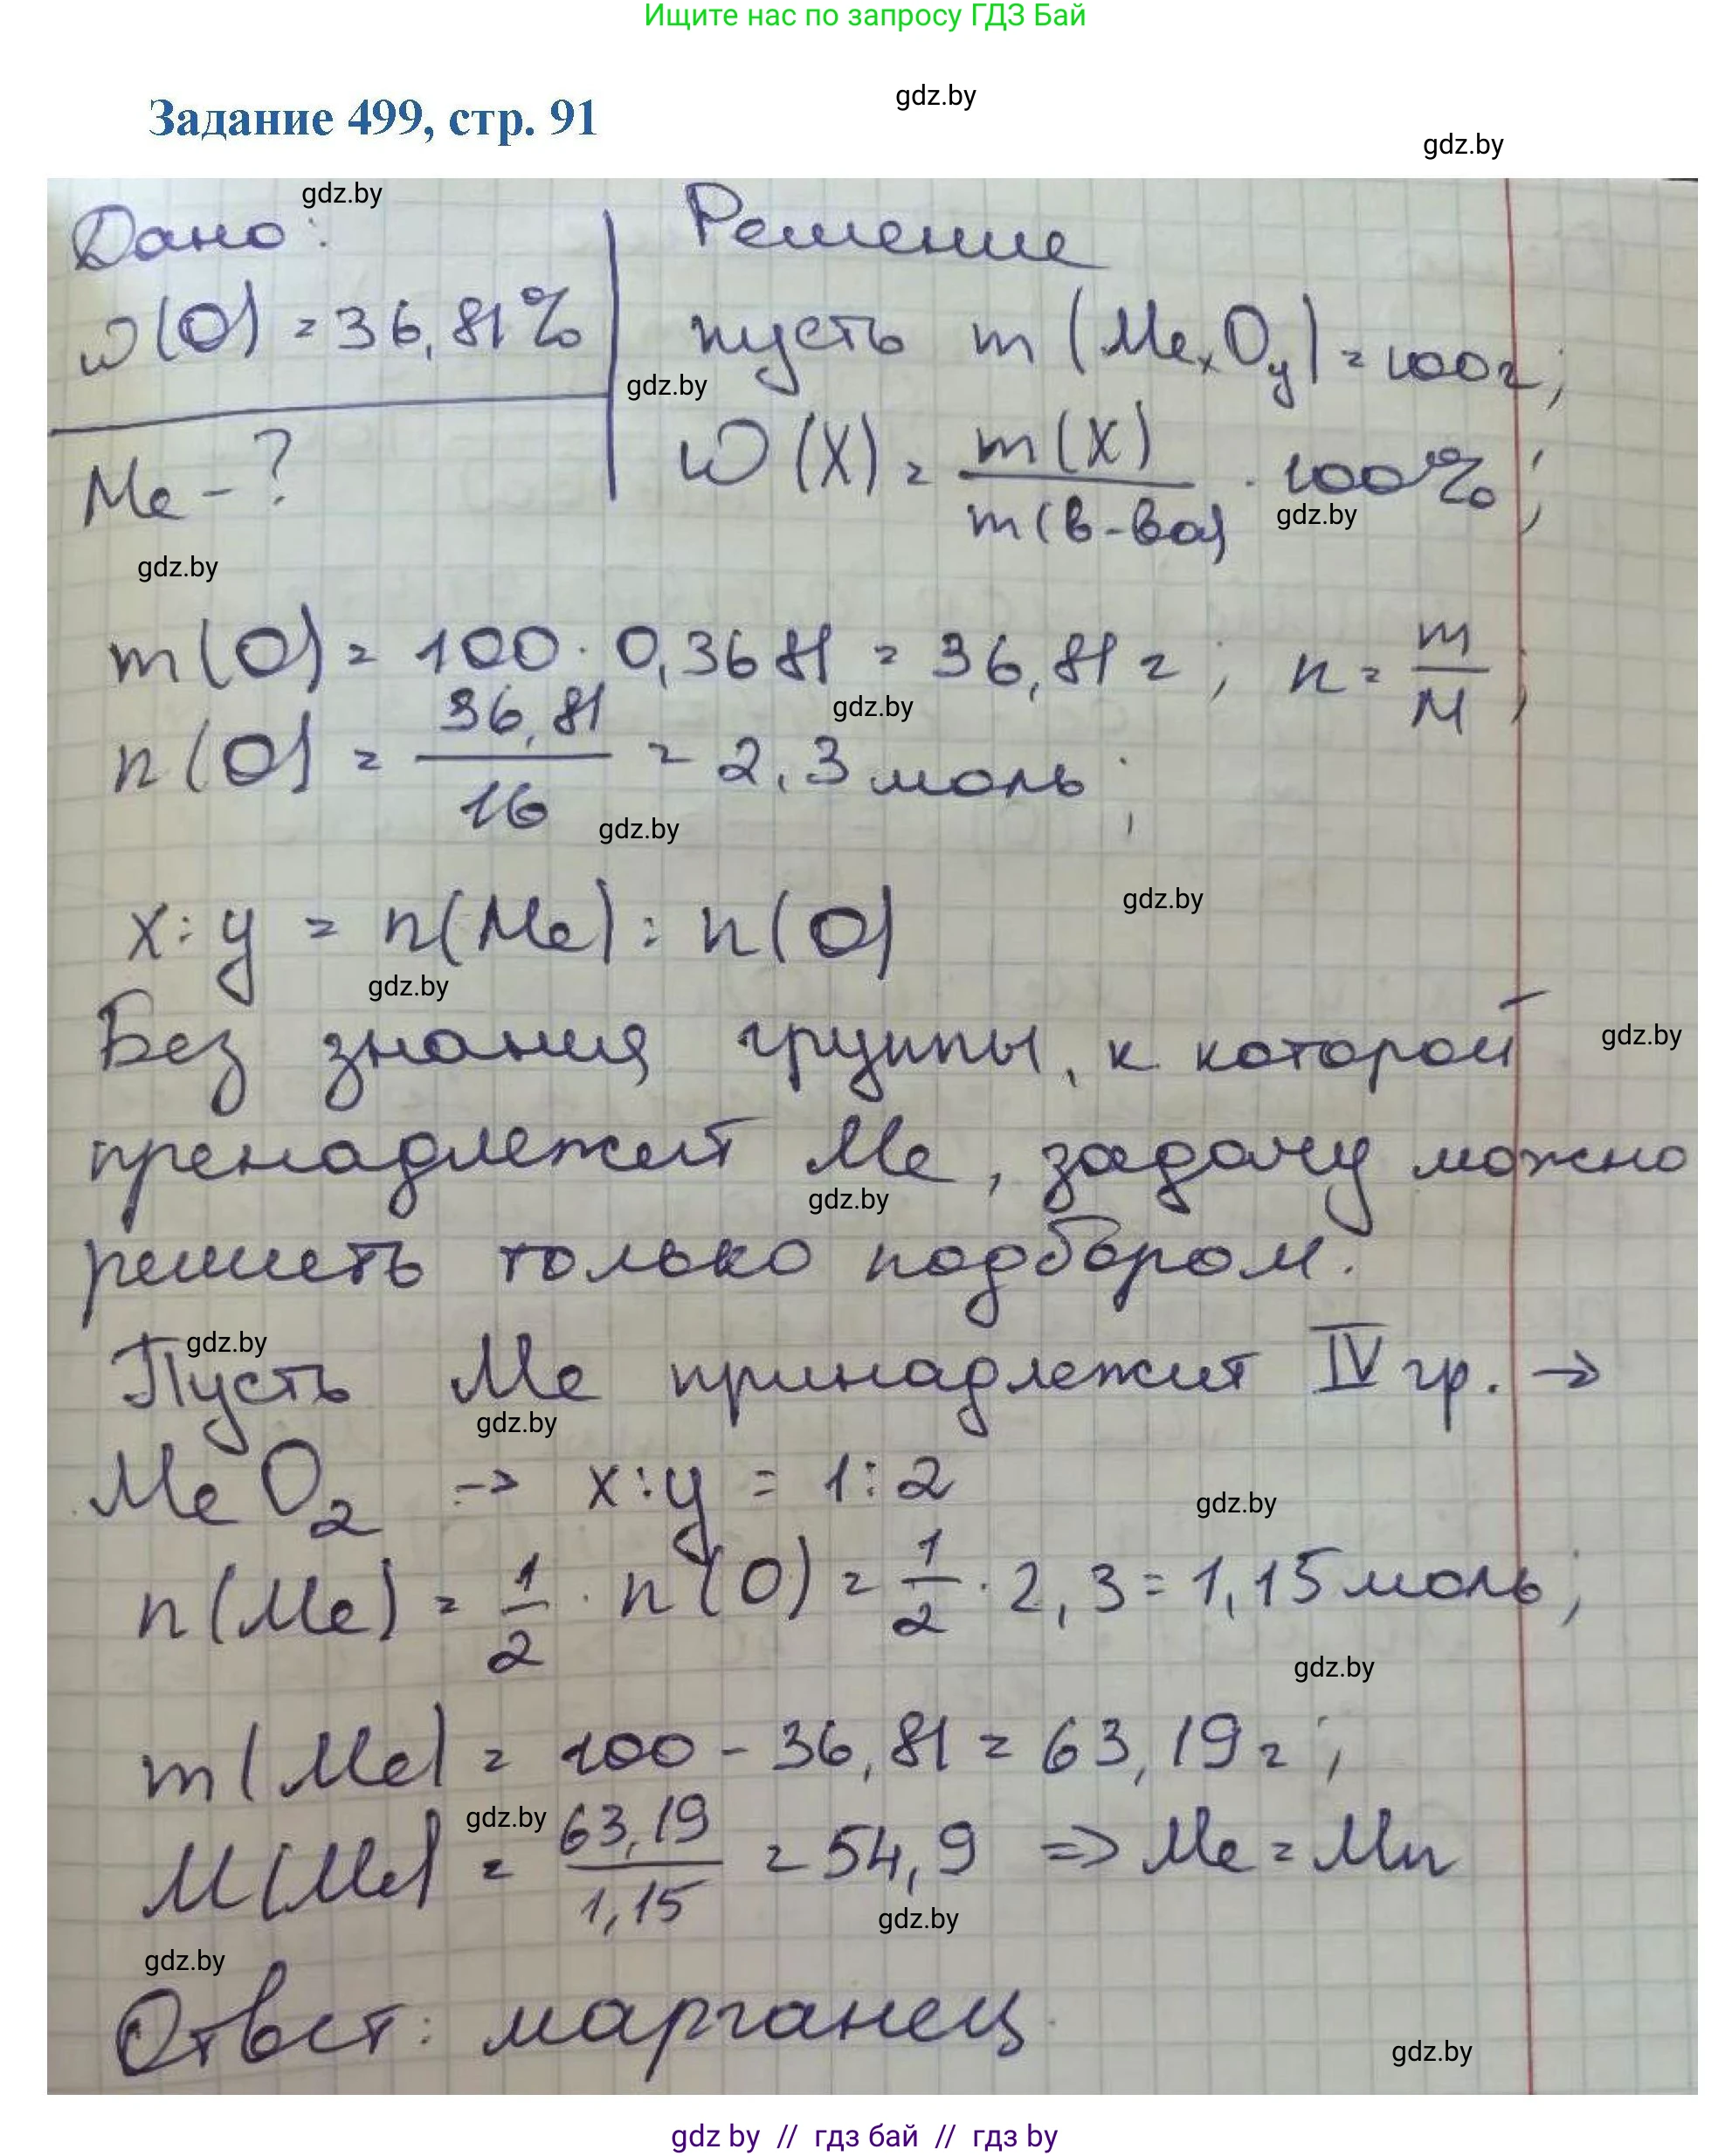 Ищите нас по запросу ГДЗ Бай
gdz.by
Задание 499, стр. 91
gdz.by
gdz.by
Дано:
Решение
w(O) = 36,81%
пусть m(MexOy) = 100г;
gdz.by
Me - ?
w(X) = m(X) / m(в-ва) · 100%;
gdz.by
gdz.by
m(O) = 100 · 0,3681 = 36,81 г; n = m / M;
gdz.by
n(O) = 36,81 / 16 = 2,3 моль;
gdz.by
gdz.by
x : y = n(Me) : n(O)
gdz.by
Без знания группы, к которой
gdz.by
пренадлежит Me, задачу можно
gdz.by
решить только подбором.
gdz.by
Пусть Me принадлежит IV гр. →
gdz.by
MeO2 → x:y = 1:2
gdz.by
n(Me) = 1/2 · n(O) = 1/2 · 2,3 = 1,15 моль;
gdz.by
m(Me) = 100 - 36,81 = 63,19 г;
gdz.by
M(Me) = 63,19 / 1,15 = 54,9 => Me = Mn
gdz.by
gdz.by
Ответ: марганец
gdz.by
gdz by // гдз бай // гдз by